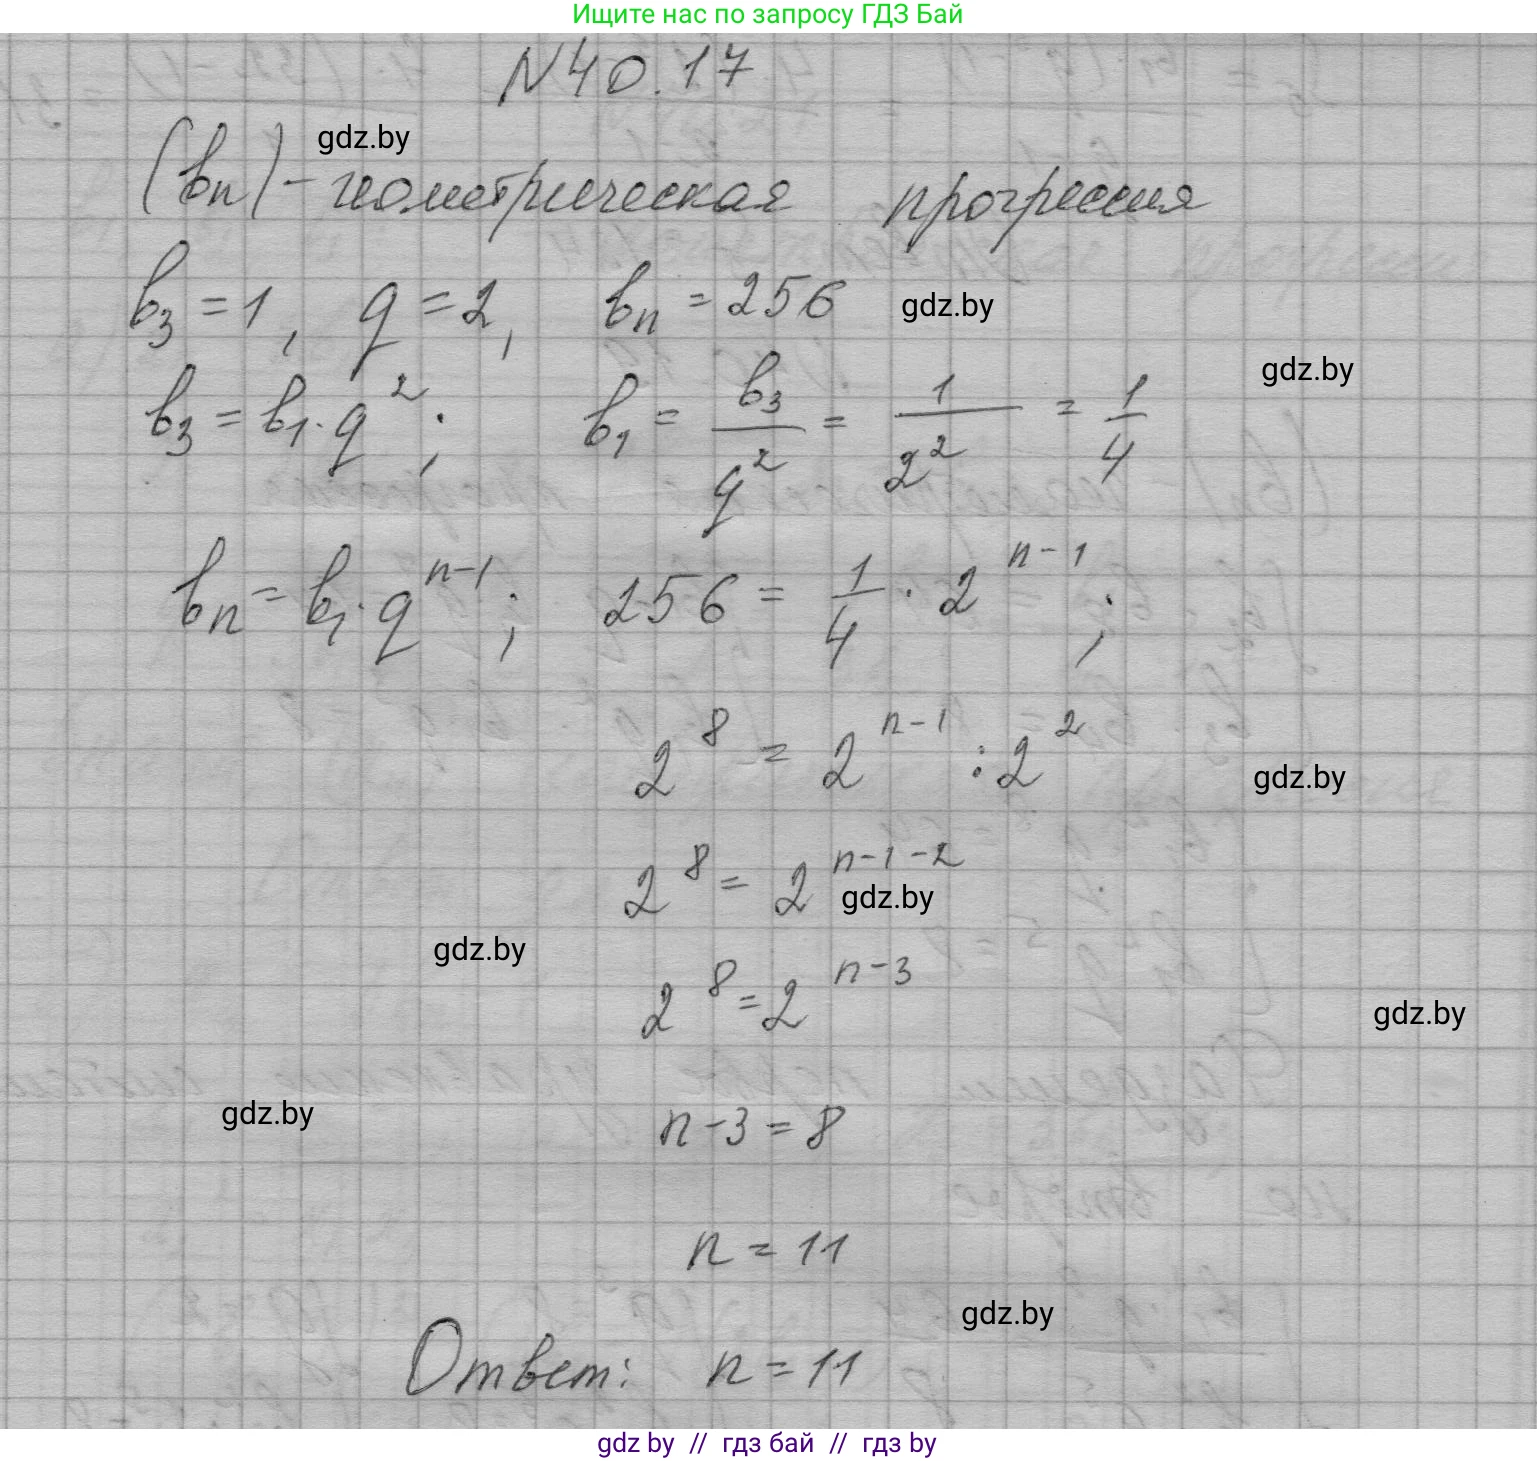 Ищите нас по запросу ГДЗ Бай
N40.17
gdz.by
(bn) - геометрическая прогрессия
b₃ = 1, q = 2, bn = 256
gdz.by
gdz.by
b₃ = b₁ · q²; b₁ = b₃/q² = 1/2² = 1/4
bn = b₁ · q^(n-1); 256 = 1/4 · 2^(n-1);
2⁸ = 2^(n-1) : 2²
gdz.by
2⁸ = 2^(n-1-2)
gdz.by
gdz.by
2⁸ = 2^(n-3)
gdz.by
gdz.by
n-3 = 8
n = 11
gdz.by
Ответ: n = 11
gdz by // гдз бай // гдз by